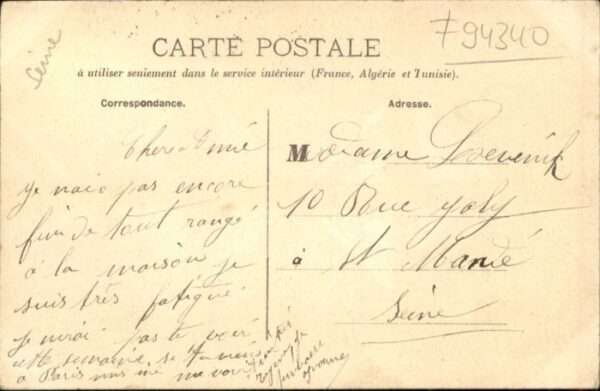 Seine
F94340
CARTE POSTALE
à utiliser seulement dans le service intérieur (France, Algérie et Tunisie).
Correspondance.
Adresse.
Chere Amie
Je naio pas encore
fini de tout rangé
à la maison je
suis très fatigué
je nirai pas te voir
cette semaine si tu
à Paris me voir
Madame
10 Rue Joly
à St Mandé
Seine